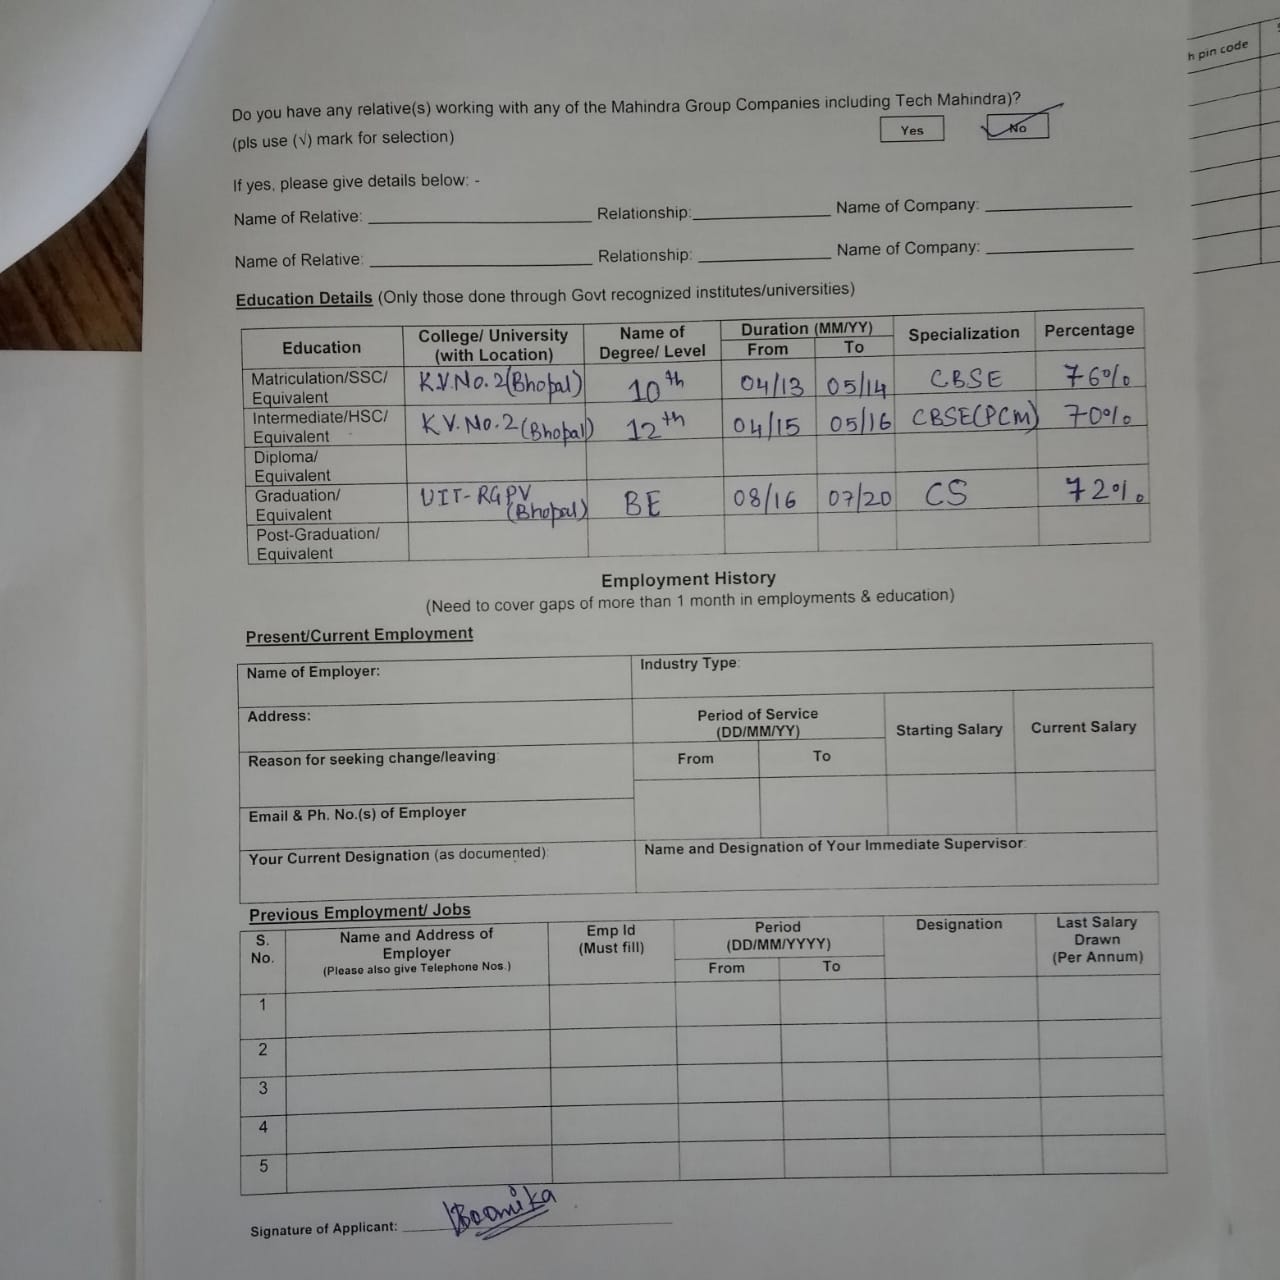 h pin code
Do you have any relative(s) working with any of the Mahindra Group Companies including Tech Mahindra)?
(pls use (√) mark for selection)
Yes
No
If yes, please give details below: -
Name of Relative: Relationship: Name of Company:
Name of Relative: Relationship: Name of Company:
Education Details (Only those done through Govt recognized institutes/universities)
Education College/ University (with Location) Name of Degree/ Level Duration (MM/YY) From To Specialization Percentage
Matriculation/SSC/ Equivalent K.V.No.2(Bhopal) 10th 04/13 05/14 CBSE 76%
Intermediate/HSC/ Equivalent K.V.No.2(Bhopal) 12th 04/15 05/16 CBSE(PCM) 70%
Diploma/ Equivalent
Graduation/ Equivalent UIT-RGPV (Bhopal) BE 08/16 07/20 CS 72%
Post-Graduation/ Equivalent
Employment History
(Need to cover gaps of more than 1 month in employments & education)
Present/Current Employment
Name of Employer: Industry Type:
Address: Period of Service (DD/MM/YY) Starting Salary Current Salary
Reason for seeking change/leaving: From To
Email & Ph. No.(s) of Employer
Your Current Designation (as documented): Name and Designation of Your Immediate Supervisor:
Previous Employment/ Jobs
S. No. Name and Address of Employer (Please also give Telephone Nos.) Emp Id (Must fill) Period (DD/MM/YYYY) From To Designation Last Salary Drawn (Per Annum)
1
2
3
4
5
Signature of Applicant: